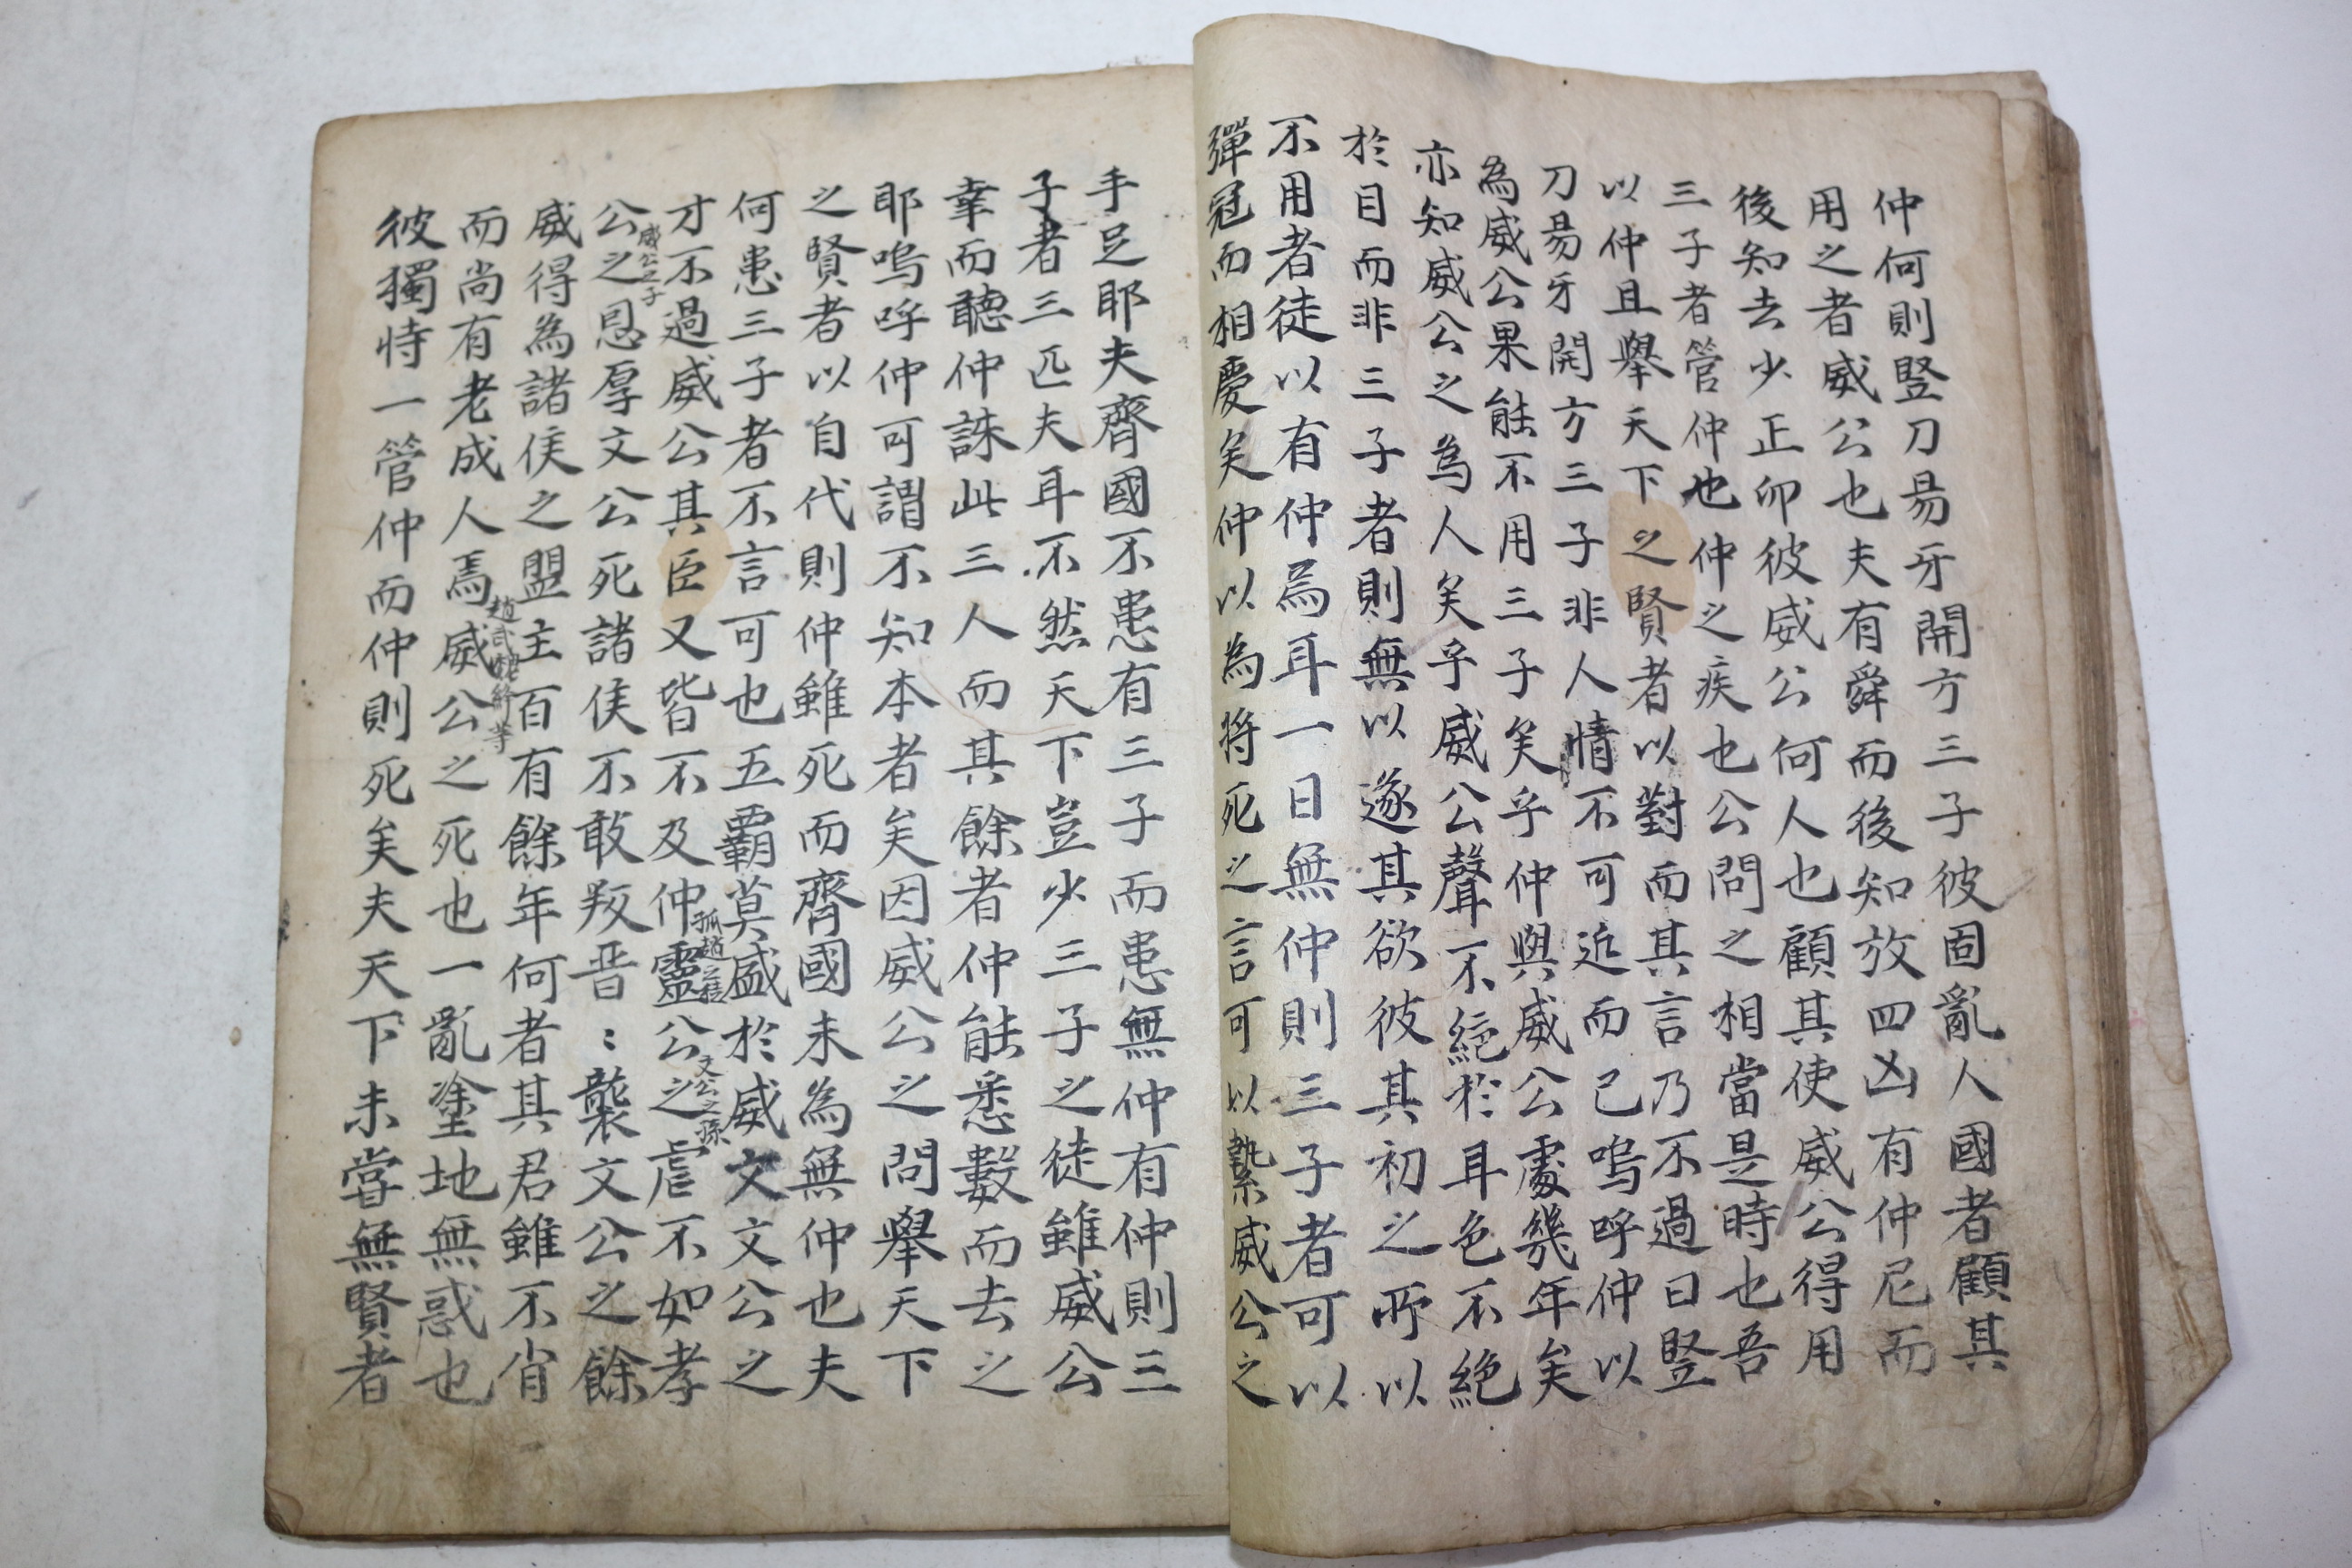 仲何則竪刀易牙開方三子彼固亂人國者顧其
用之者威公也夫有舜而後知放四凶有仲尼而
後知去少正卯彼威公何人也顧其使威公得用
三子者管仲也仲之疾也公問之相當是時也吾
以仲且舉天下之賢者以對而其言乃不過曰竪
刀易牙開方三子非人情不可近而已嗚呼仲以
為威公果能不用三子矣乎仲與威公處幾年矣
亦知威公之為人矣乎威公聲不絕於耳色不絕
於目而非三子者則無以遂其欲彼其初之所以
不用者徒以有仲焉耳一日無仲則三子者可以
彈冠而相慶矣仲以為將死之言可以縶威公之
手足耶夫齊國不患有三子而患無仲有仲則三
子者三匹夫耳不然天下豈少三子之徒雖威公
幸而聽仲誅此三人而其餘者仲能悉數而去之
耶嗚呼仲可謂不知本者矣因威公之問舉天下
之賢者以自代則仲雖死而齊國未為無仲也夫
何患三子者不言可也五覇莫盛於威文文公之
孤趙
文公之孫
才不過威公其臣又皆不及仲靈公之虐不如孝
威公之子
公之恩厚文公死諸侯不敢叛晋〻襲文公之餘
威得為諸侯之盟主百有餘年何者其君雖不肖
趙武魏絳等
而尚有老成人焉威公之死也一亂塗地無惑也
彼獨恃一管仲而仲則死矣夫天下未嘗無賢者